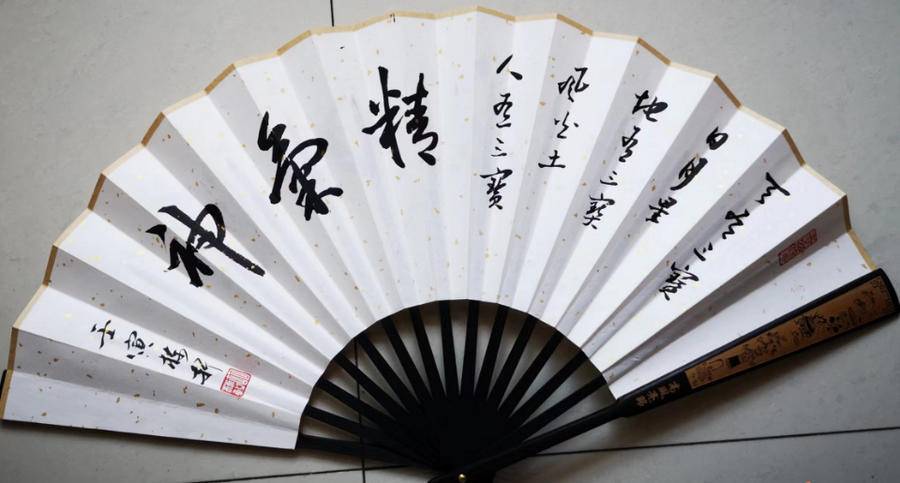 天有三寶
日月星
地有三寶
风火土
人有三寶
精
氣
神
壬寅